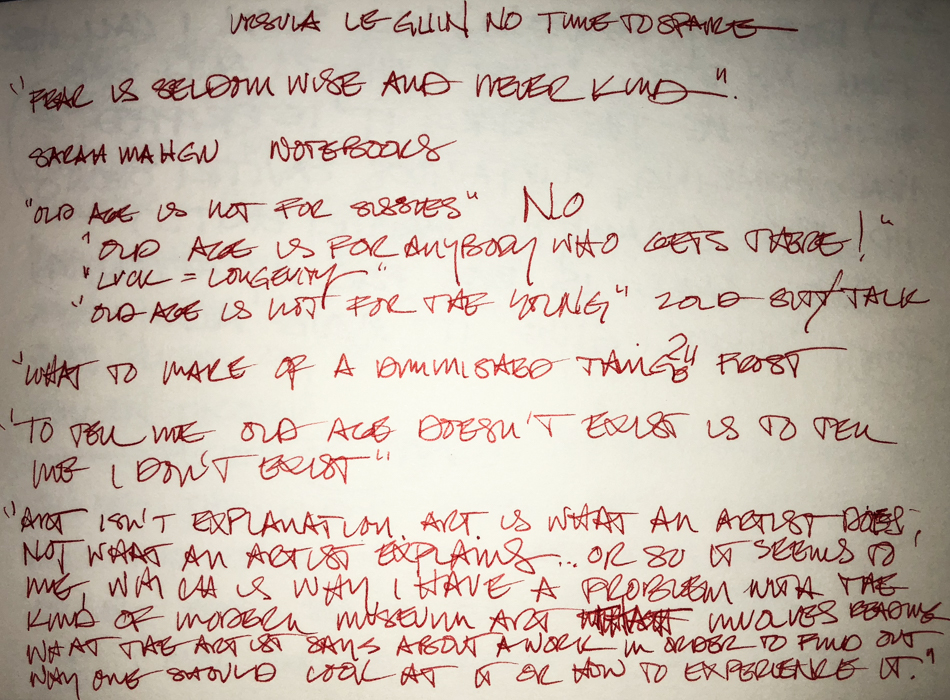 URSULA LE GUIN NO TIME TO SPARE
"FEAR IS SELDOM WISE AND NEVER KIND".
SARAH NOTEBOOKS
"OLD AGE IS NOT FOR SISSIES" NO
"OLD AGE IS FOR ANYBODY WHO GETS THERE!"
"LUCK = LONGEVITY"
"OLD AGE IS NOT FOR THE YOUNG" OLD GUY TALK
"WHAT TO MAKE OF A DIMINISHED THING?" FROST
"TO TELL ME OLD AGE DOESN'T EXIST IS TO TELL
ME I DON'T EXIST"
"ART ISN'T EXPLANATION. ART IS WHAT AN ARTIST DOES,
NOT WHAT AN ARTIST EXPLAINS... OR SO IT SEEMS TO
ME, WHICH IS WHY I HAVE A PROBLEM WITH THE
KIND OF MODERN MUSEUM ART INVOLVES READING
WHAT THE ARTIST SAYS ABOUT A WORK IN ORDER TO FIND OUT
WHY ONE SHOULD LOOK AT IT OR HOW TO EXPERIENCE IT."